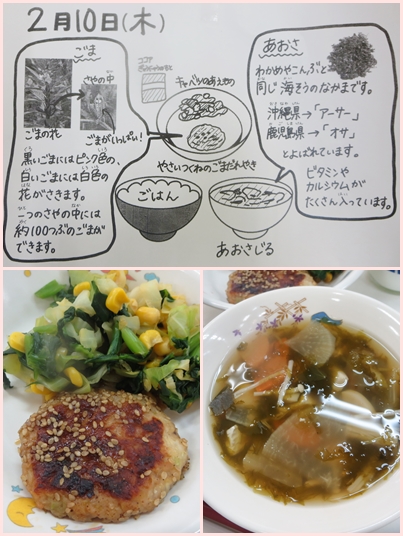 2月10日(木)
ごま
さやの中
ごまの花
ごまがいっぱい!
黒いごまにはピンク色の、
白いごまには白色の
花がさきます。
一つのさやの中には
約100つぶのごまが
できます。
ココア
キャベツのあえもの
やさいつくねのごまだれやき
ごはん
あおさじる
あおさ
わかめやこんぶと
同じ海そうのなかまです。
沖縄県→「アーサー」
鹿児島県→「オサ」
とよばれています。
ビタミンや
カルシウムが
たくさん入っています。